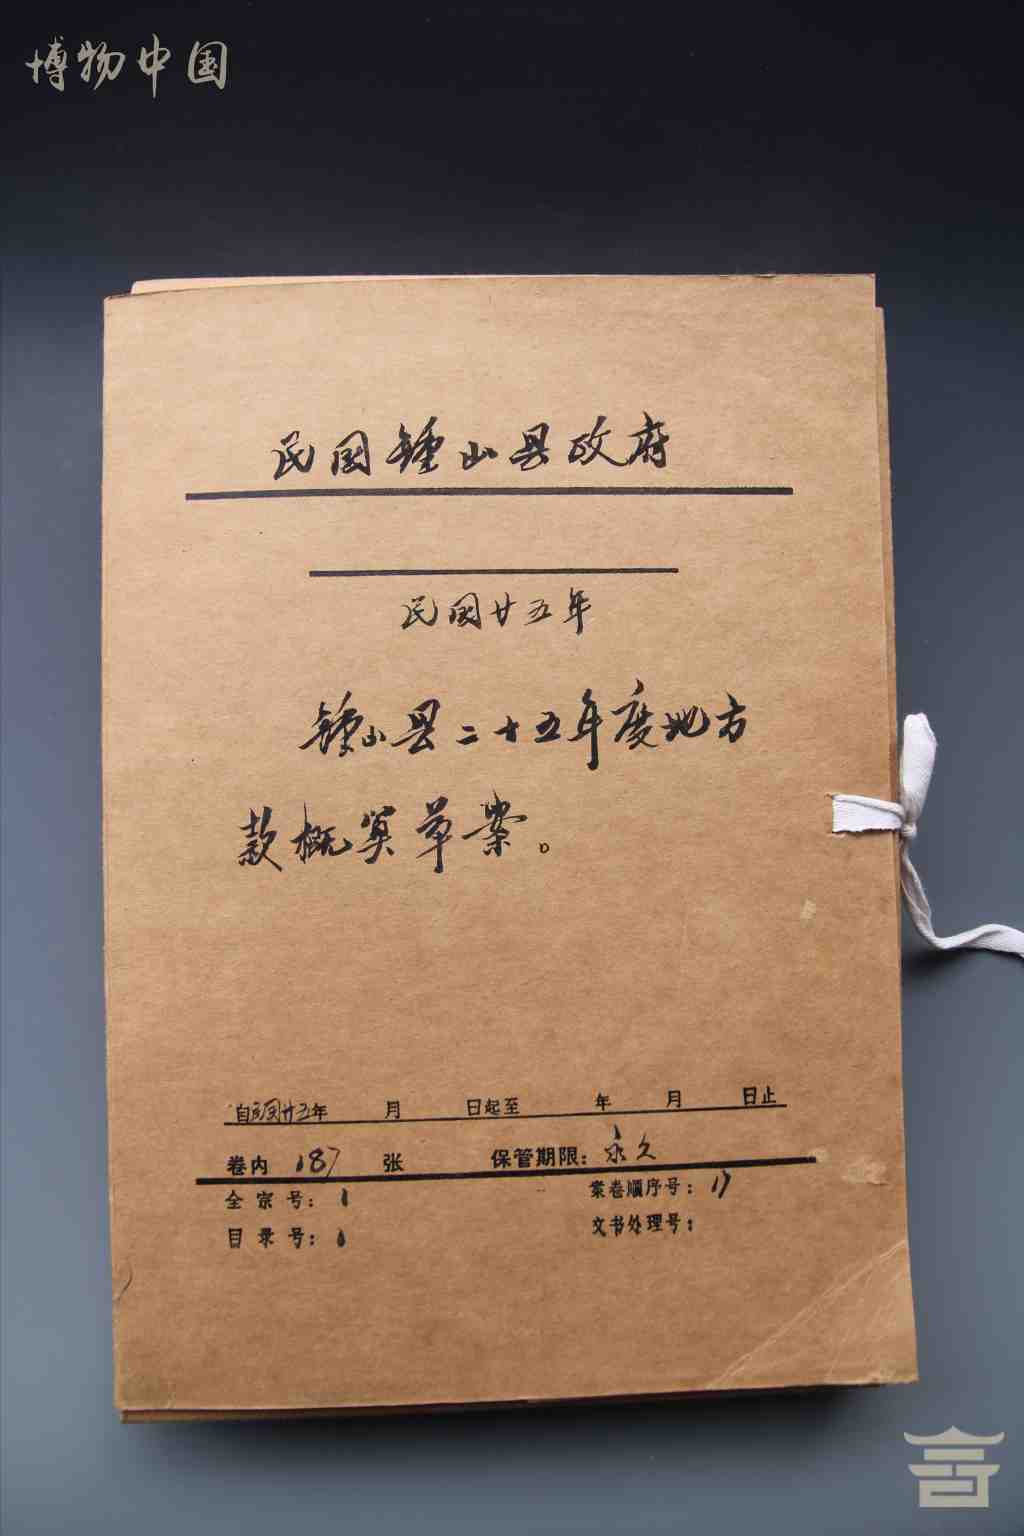 博物中国
民国鍾山县政府
民国廿五年
鍾山县二十五年度地方
款概算草案。
自民国廿五年 月 日起至 年 月 日止
卷内 187 张 保管期限：永久
全宗号：1 案卷顺序号：17
目录号：1 文书处理号：